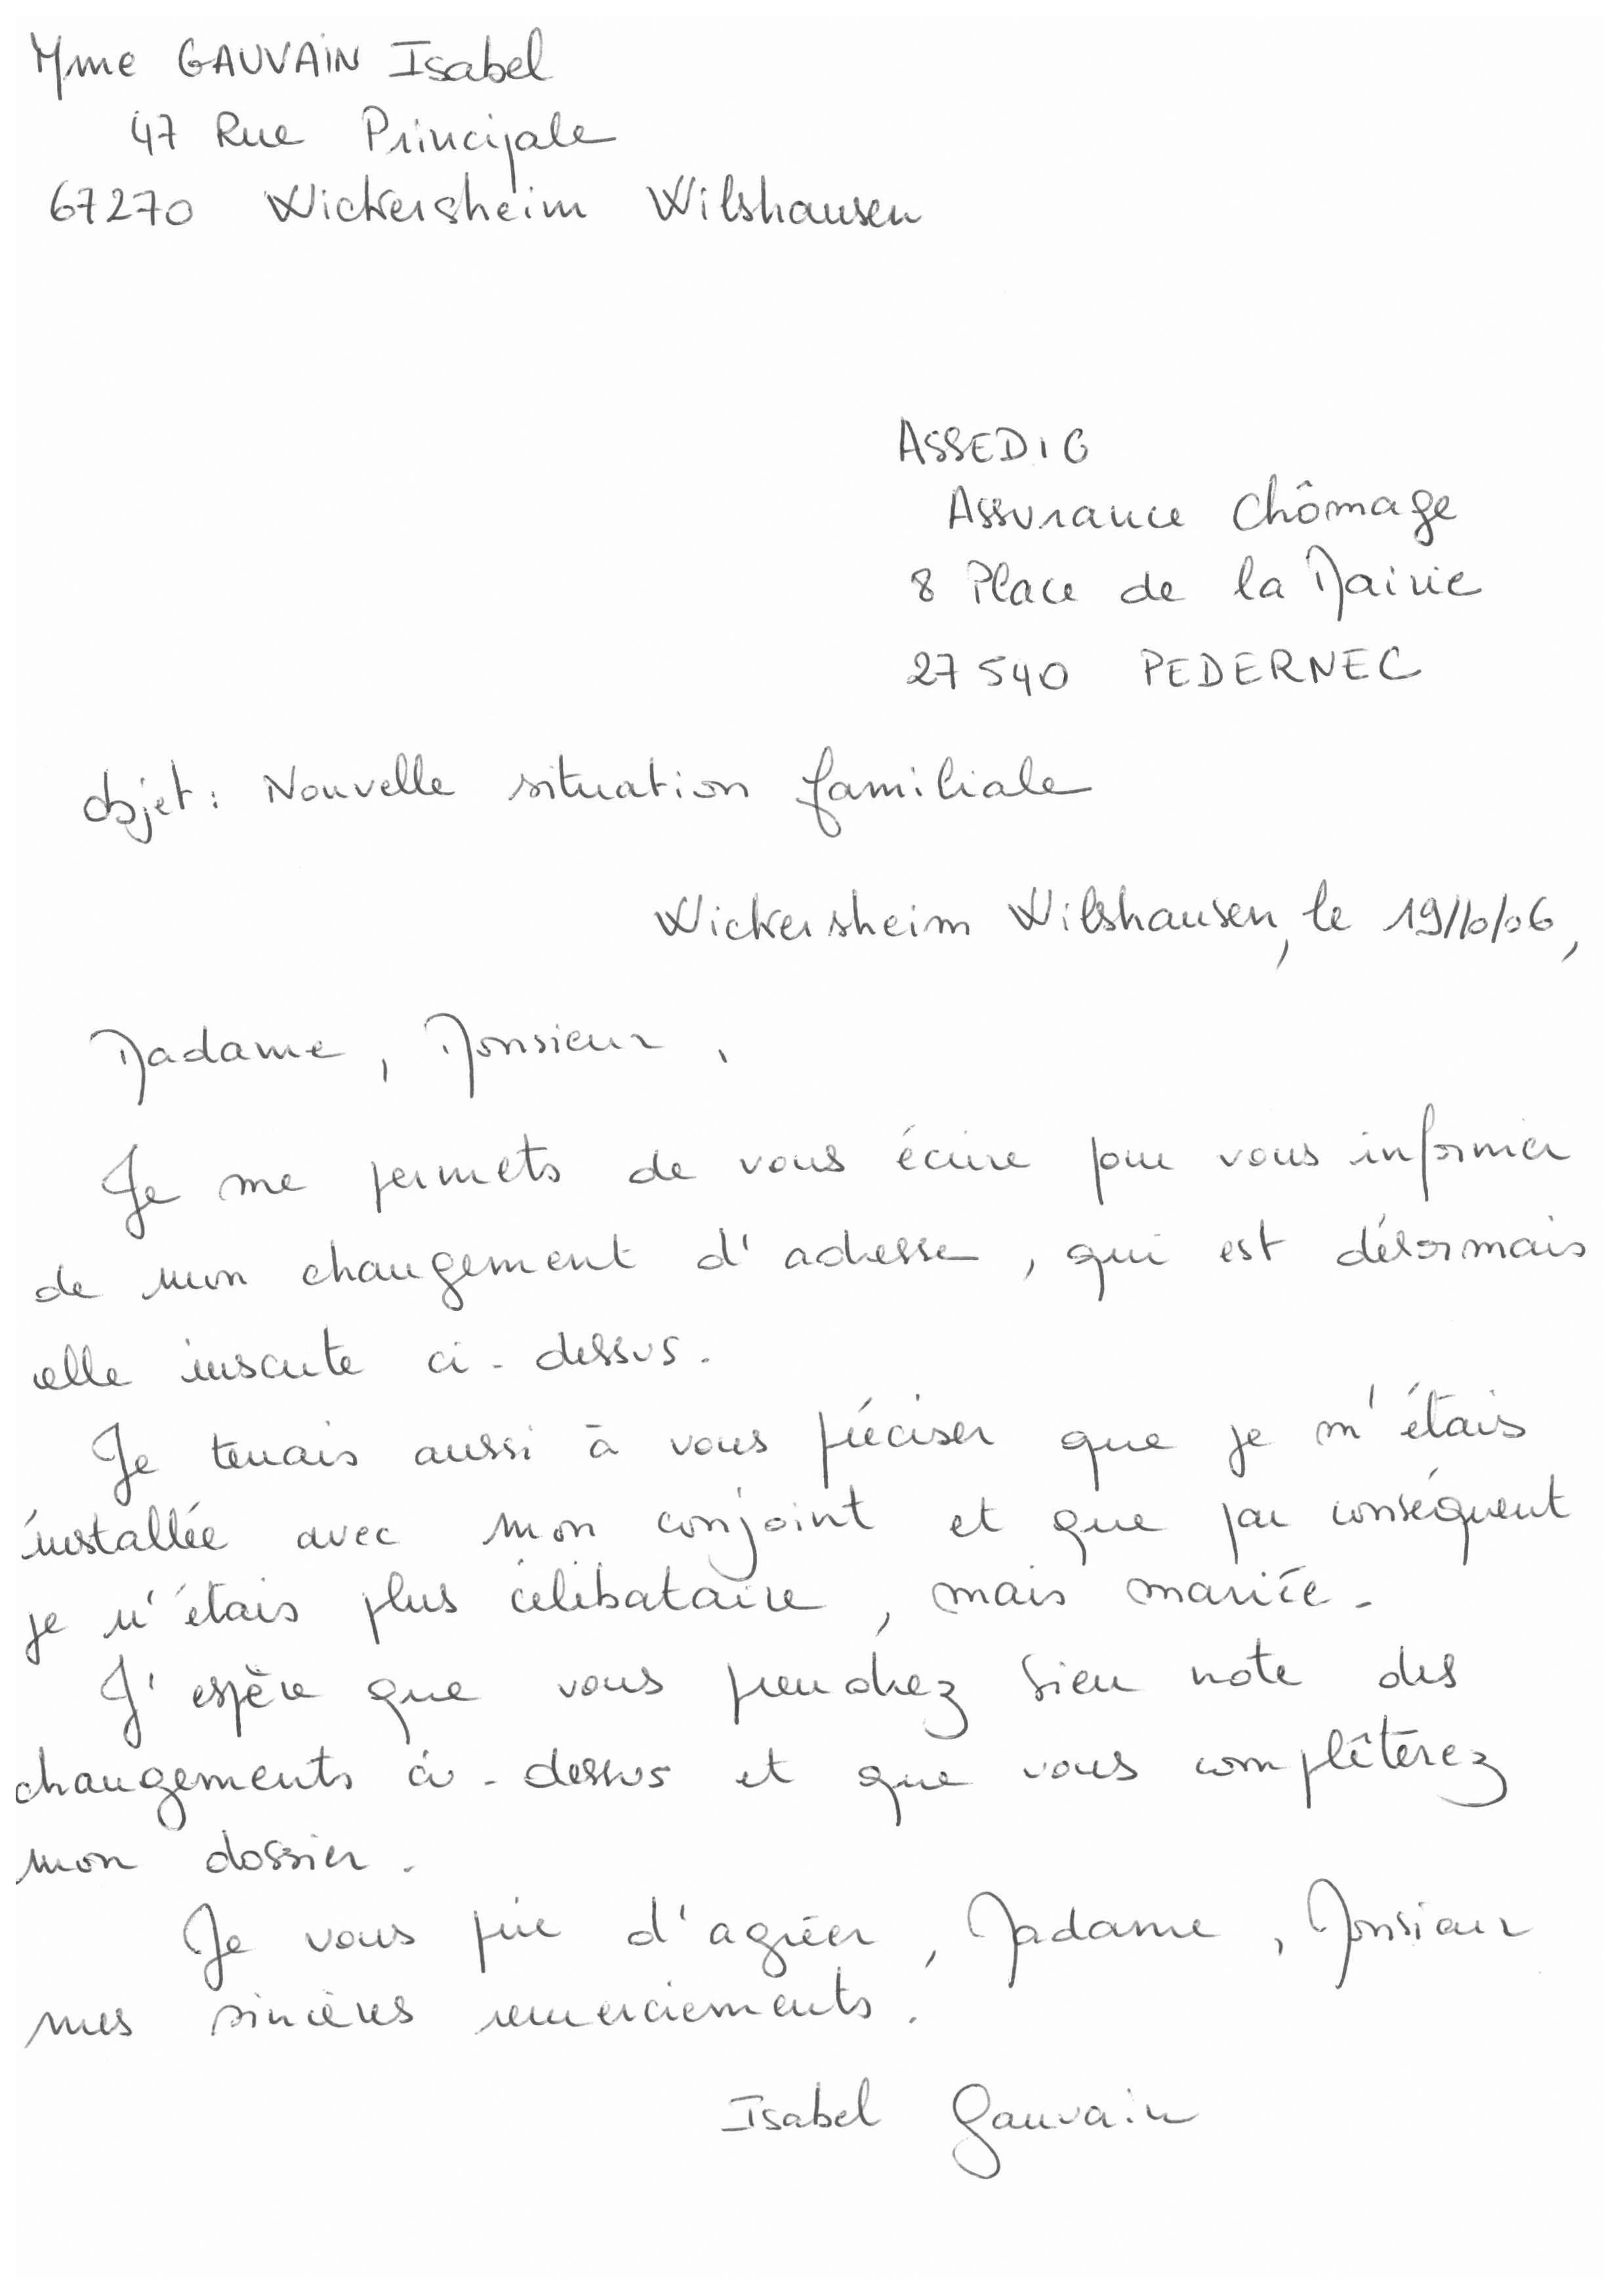 Mme GAUVAIN Isabel
47 Rue Principale
67270 Wickersheim Wilshausen
ASSEDIC
Assurance Chômage
8 Place de la Mairie
27540 PEDERNEC
Objet : Nouvelle situation familiale
Wickersheim Wilshausen, le 19/10/06,
Madame, Monsieur,
Je me permets de vous écrire pour vous informer
de mon changement d'adresse, qui est désormais
celle inscrite ci-dessus.
Je tenais aussi à vous préciser que je m'étais
installée avec mon conjoint et que par conséquent
je n'étais plus célibataire, mais mariée.
J'espère que vous prendrez bien note des
changements ci-dessus et que vous complêterez
mon dossier.
Je vous prie d'agréer, Madame, Monsieur
mes sincères remerciements.
Isabel Gauvain